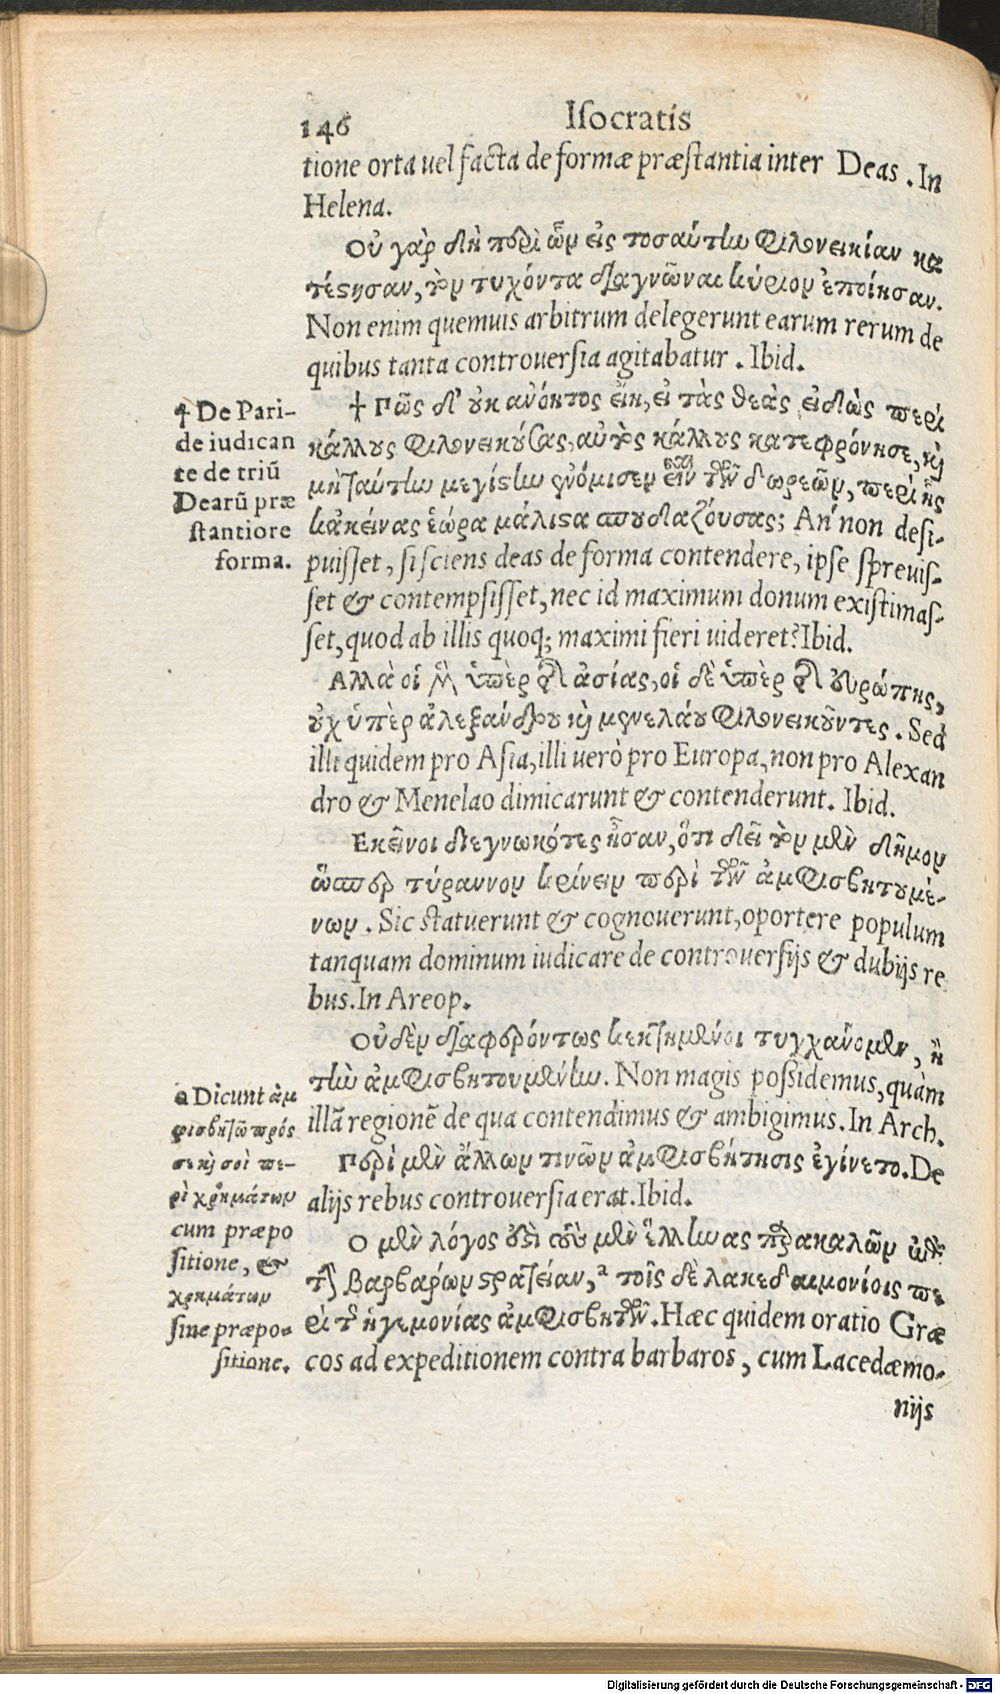 146 Isocratis
tione orta uel facta de formæ præstantia inter Deas. In
Helena.
Οὐ γὰρ δὴ περὶ ὧν εἰς τοσαύτην φιλονεικίαν κα
τέστησαν, τὸν τυχόντα διαγνῶναι κύριον ἐποίησαν.
Non enim quemuis arbitrum delegerunt earum rerum de
quibus tanta controuersia agitabatur. Ibid.
† Πῶς δ' οὐκ ἀνόητος εἴη, εἰ τὰς θεὰς εἰδὼς περὶ
κάλλους φιλονεικούσας, αὐτὸς κάλλους κατεφρόνησε, καὶ
μὴ ταύτην μεγίστην ἐνόμισεν εἶναι τῶν δωρεῶν, περὶ ἧς
κἀκείνας ἑώρα μάλιστα σπουδαζούσας; An non desi-
puisset, si sciens deas de forma contendere, ipse spreuis-
set & contempsisset, nec id maximum donum existimas-
set, quod ab illis quoq; maximi fieri uideret? Ibid.
Αλλὰ οἱ μὲν ὑπὲρ τῆς ἀσίας, οἱ δὲ ὑπὲρ τῆς εὐρώπης,
οὐχ ὑπὲρ ἀλεξάνδρου καὶ μενελάου φιλονεικοῦντες. Sed
illi quidem pro Asia, illi uerò pro Europa, non pro Alexan
dro & Menelao dimicarunt & contenderunt. Ibid.
Εκεῖνοι διεγνωκότες ἦσαν, ὅτι δεῖ τὸν μὲν δῆμον
ὥσπερ τύραννον κρίνειν περὶ τῶν ἀμφισβητουμέ-
νων. Sic statuerunt & cognouerunt, oportere populum
tanquam dominum iudicare de controuersijs & dubijs re
bus. In Areop.
Οὐδὲν διαφερόντως κεκτημένοι τυγχάνομεν, ἢ
τὴν ἀμφισβητουμένην. Non magis possidemus, quàm
illã regionẽ de qua contendimus & ambigimus. In Arch.
Περὶ μὲν ἄλλων τινῶν ἀμφισβήτησις ἐγίνετο. De
alijs rebus controuersia erat. Ibid.
Ο μὲν λόγος οὑτοσὶ τοὺς μὲν ἕλληνας παρακαλῶν ἐπὶ
τὴν βαρβάρων στρατείαν, ᵃ τοῖς δὲ λακεδαιμονίοις πε
ρὶ τῆς ἡγεμονίας ἀμφισβητῶν. Hæc quidem oratio Græ
cos ad expeditionem contra barbaros, cum Lacedæmo-
nijs
† De Pari-
de iudican
te de triũ
Dearũ præ
stantiore
forma.
a Dicunt ἀμ
φισβητῶ πρός
σε καὶ σοὶ πε-
ρὶ χρημάτων
cum præpo
sitione, &
χρημάτων
sine præpo-
sitione.
Digitalisierung gefördert durch die Deutsche Forschungsgemeinschaft - DFG